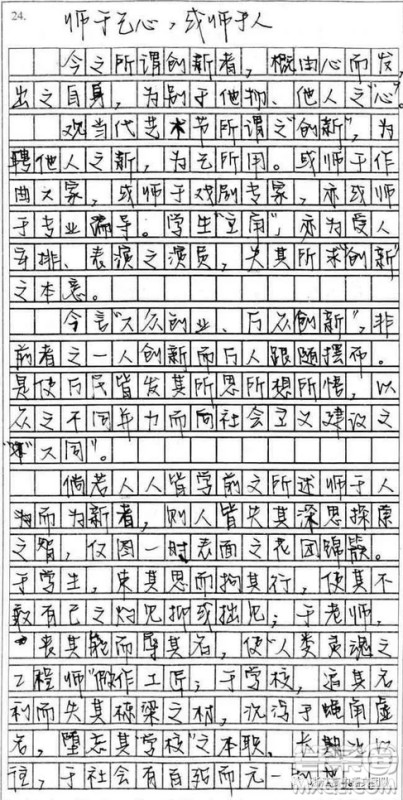 24.
师于己心，或师于人
今之所谓创新者，概由心而发，
出之自身，为别于他物、他人之“心”。
观当代艺术节所谓之“创新”，为
聘他人之新，为己所用。或师于作
曲大家，或师于戏剧专家，亦或师
于专业编导。学生“立南”，亦为受人
安排、表演之演员，失其所求“创新”
之本意。
今言“大众创业、万众创新”，非
前者之一人创新而万人跟随摆布。
是使万民皆发其所思所想所悟，以
众之不同年力而向社会主义建设之
“大同”。
倘若人人皆学前文所述师于人
而为新者，则人皆失其深思探索
之智，仅图一时表面之花团锦簇。
于学生，束其思而拘其行，使其不
敢有己之灼见抑或拙见；于老师，
丧其能而辱其名，使“人类灵魂之
工程师”做作工匠；于学校，沽其名
利而失其栋梁之材，沉沔于蝇甬虚
名，堕忘其“学校”之本职。长期此以
往，于社会有百弊而无一